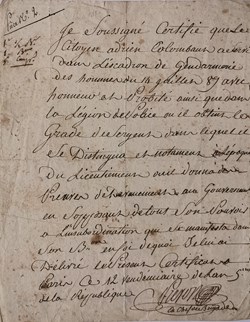 Je Soussigné Certifie que Le
Citoyen adrien Colombant a servi
dans L'escadron de Gendarmerie
des hommes du 14 juillet 89 avec
honneur et Probité ainsi que dans
la Légion de Police ou il obtint le
Grade de Sergent dans lequel il
Se Distingua et notament a l'epoque
du Licentiement ou il donna des
Preuves d'attachement au Gouvernement
en Sopposant de tout Son Pouvoir
a L'insubordination qui Se manifesta dans
Son B.on en foi de quoi Je lui ai
Délivré le Présent Certificat a
Paris ce 12 vendemiaire de l'an 5.me
de la République